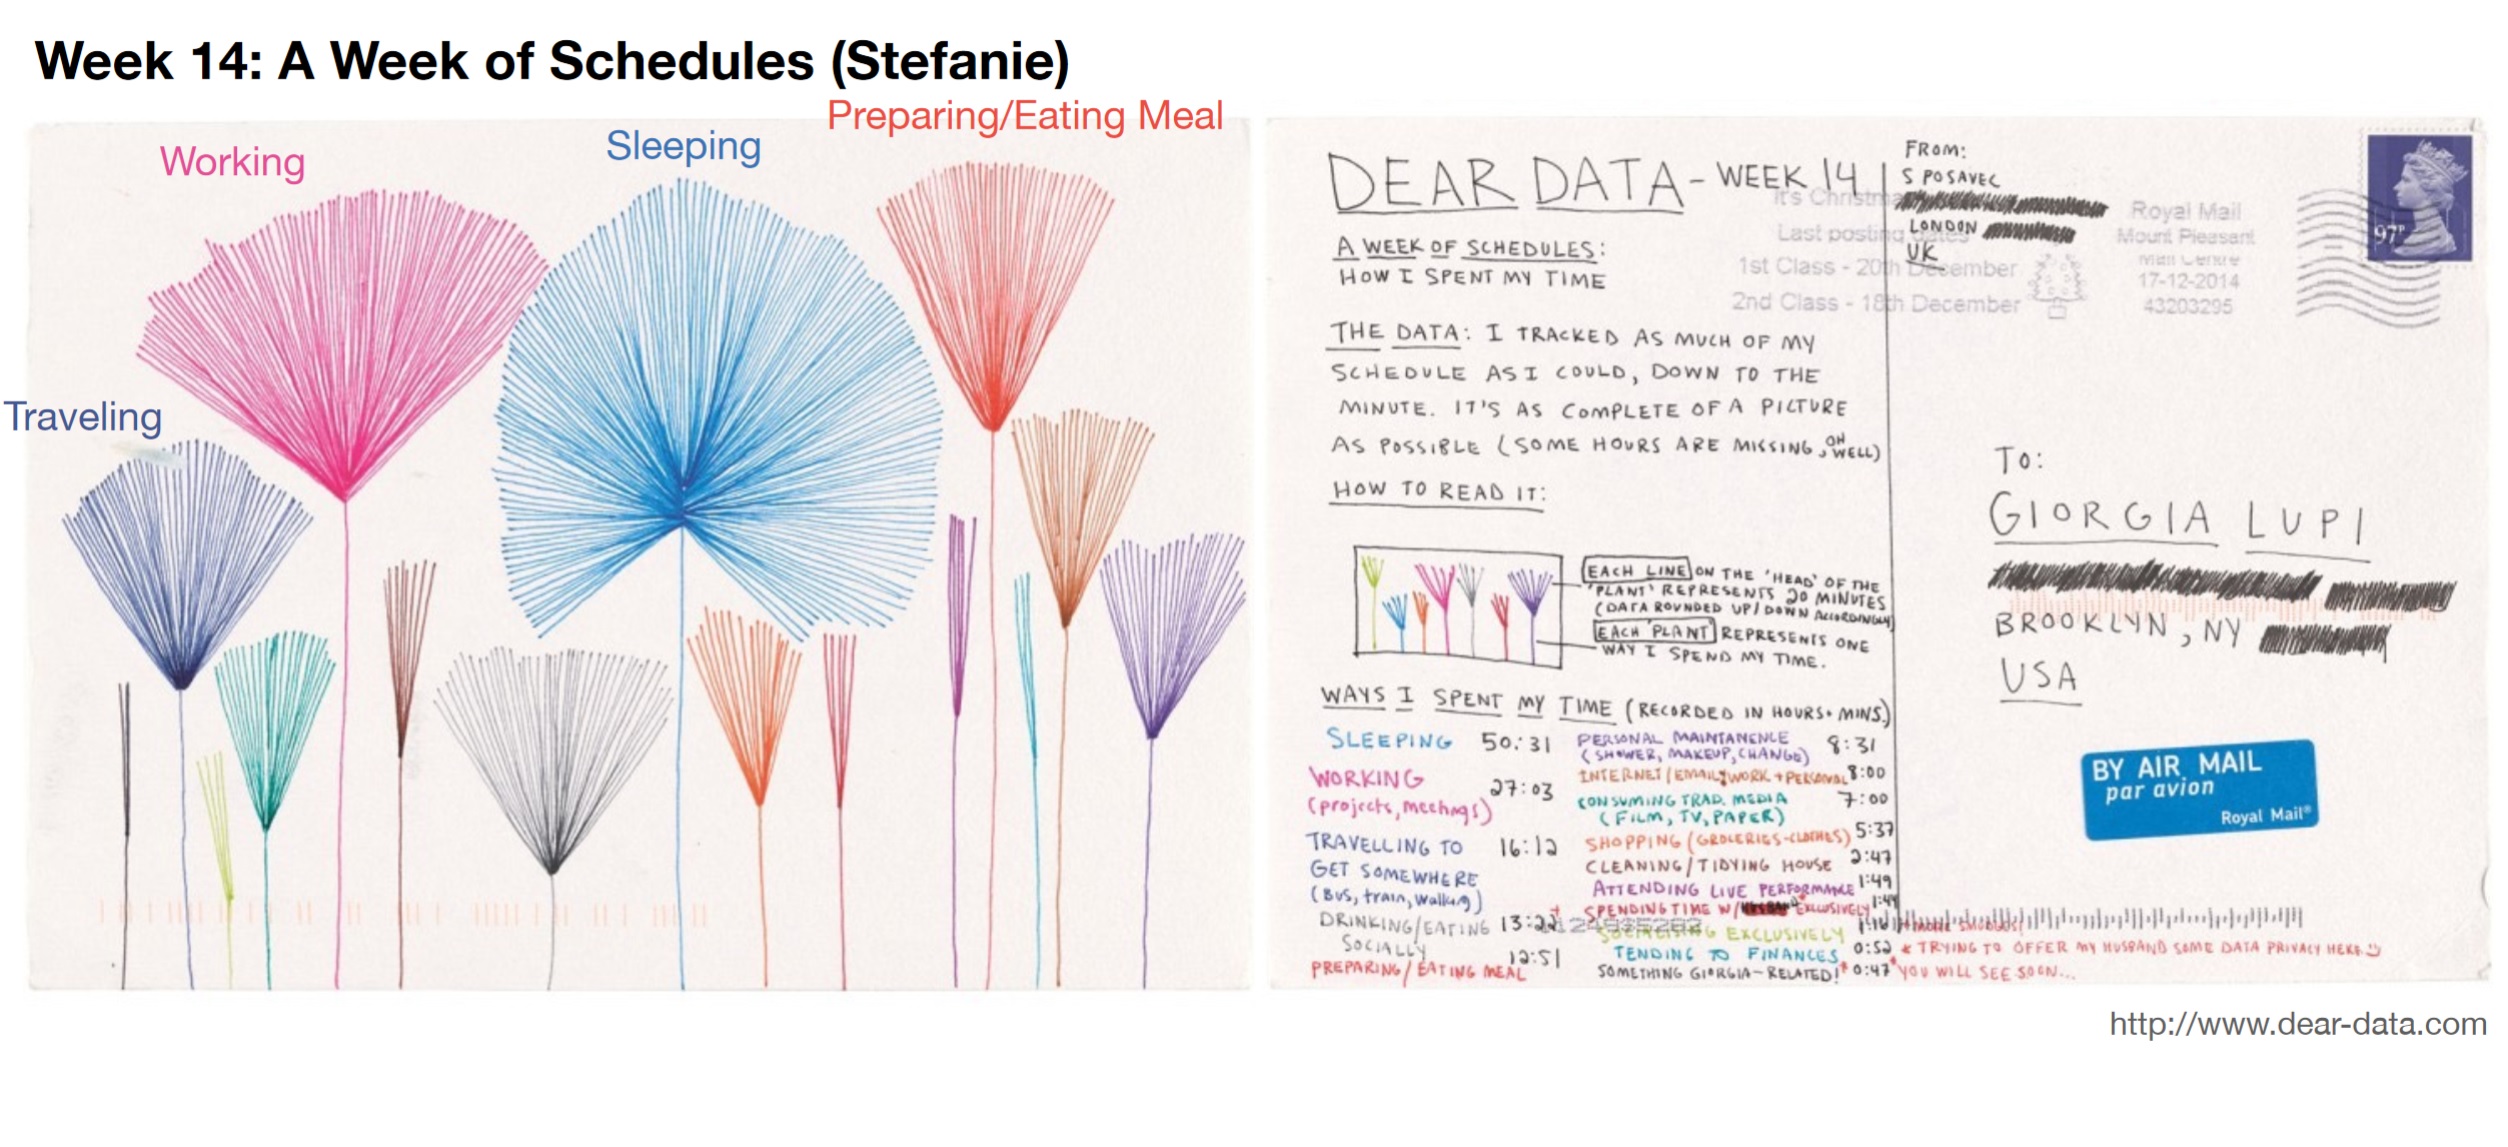 Week 14: A Week of Schedules (Stefanie)
Preparing/Eating Meal
Sleeping
Working
Traveling
DEAR DATA - WEEK 14
A WEEK OF SCHEDULES:
HOW I SPENT MY TIME
THE DATA: I TRACKED AS MUCH OF MY
SCHEDULE AS I COULD, DOWN TO THE
MINUTE. IT'S AS COMPLETE OF A PICTURE
AS POSSIBLE (SOME HOURS ARE MISSING, OH WELL)
HOW TO READ IT:
EACH LINE ON THE 'HEAD' OF THE
'PLANT' REPRESENTS 20 MINUTES
(DATA ROUNDED UP/DOWN ACCORDINGLY)
EACH 'PLANT' REPRESENTS ONE
WAY I SPEND MY TIME.
WAYS I SPENT MY TIME (RECORDED IN HOURS + MINS.)
SLEEPING 50:31
WORKING
(projects, meetings) 27:03
TRAVELLING TO 16:12
GET SOMEWHERE
(Bus, train, walking)
DRINKING/EATING 13:22
SOCIALLY
12:51
PREPARING/EATING MEAL
PERSONAL MAINTANENCE 8:31
(SHOWER, MAKEUP, CHANGE)
INTERNET/EMAIL, WORK + PERSONAL 8:00
CONSUMING TRAD. MEDIA 7:00
(FILM, TV, PAPER)
SHOPPING (GROCERIES-CLOTHES) 5:37
CLEANING/TIDYING HOUSE 2:47
ATTENDING LIVE PERFORMANCE 1:49
SPENDING TIME W/ EXCLUSIVELY
SOCIALISING EXCLUSIVELY
TENDING TO FINANCES 0:52
SOMETHING GIORGIA-RELATED!* 0:47
+ MORE SMUDGES!
* TRYING TO OFFER MY HUSBAND SOME DATA PRIVACY HERE
*YOU WILL SEE SOON...
FROM:
S POSAVEC
LONDON
UK
It's Christma
Last posting dates
1st Class - 20th December
2nd Class - 18th December
Royal Mail
Mount Pleasant
Mail Centre
17-12-2014
43203295
97P
TO:
GIORGIA LUPI
BROOKLYN, NY
USA
BY AIR MAIL
par avion
Royal Mail®
http://www.dear-data.com